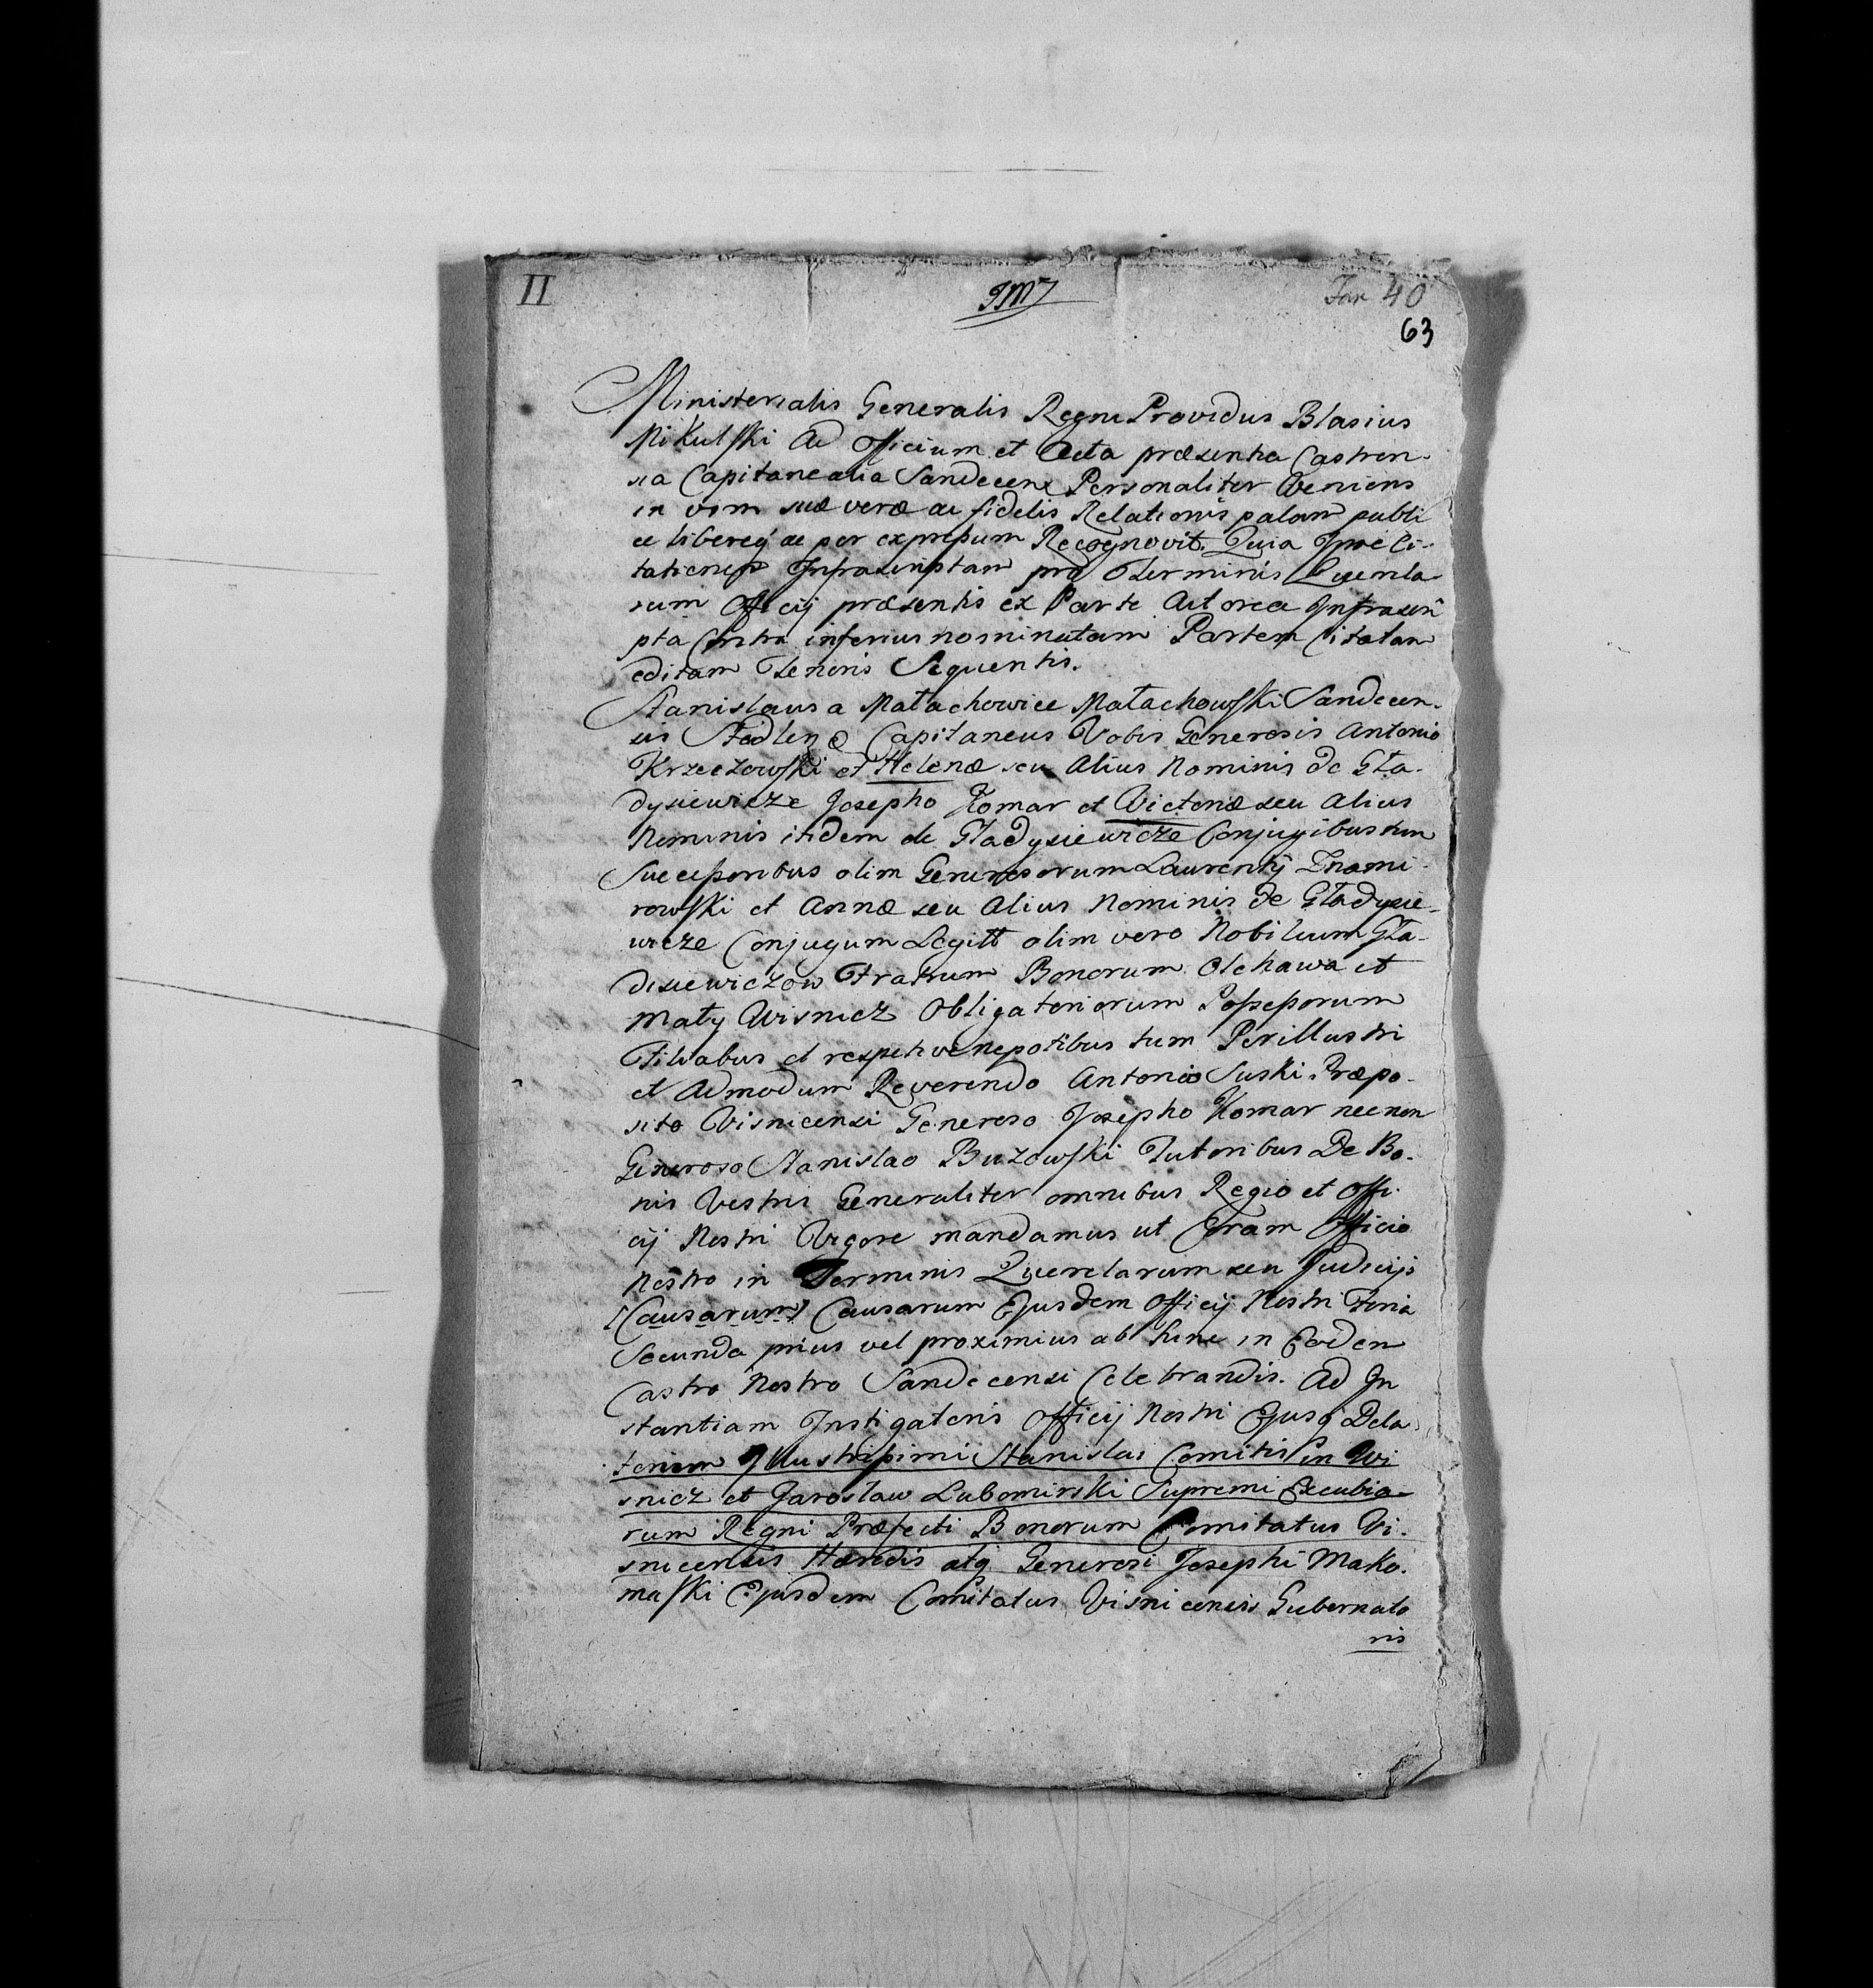 II
Fav 40
63
Ministerialis Generalis Regni Providus Blasius
Mikulski Ad Officium et Acta præsentia Castren-
sia Capitanealia Sandecen Personaliter Veniens
in vim suæ veræ ac fidelis Relationis palam publi
ce libereq ac per expressum Recognovit. Quia Ipse Ci-
tationem Infrascriptam pro Terminis Querela
rum Officij præsentis ex Parte Actorea Infrascri
pta Contra inferius nominatam Partem Citatam
editam Tenoris Sequentis.
Stanislaus a Małachowice Małachowski Sandecen-
sis Capitaneus Vobis Generosis Antonio
Krzeczowski et Helenæ seu Alius Nominis de Gła-
dysiewicze Josepho Komar et Victoriæ seu Alius
Nominis itidem de Gładysiewicze Conjugibus tum
Successoribus olim Generosorum Laurentij Znami-
rowski et Annæ seu Alius Nominis de Gładysie-
wicze Conjugum Legitt olim vero Nobilium Gła-
disiewiczow Fratrum Bonorum Olchawa et
Mały Wisnicz Obligatoriorum Possessorum
Filiabus et respetive nepotibus tum Perillustri
et Admodum Reverendo Antonio Suski Præpo-
sito Visnicensi Generoso Josepho Komar necnon
Generoso Stanislao Buzowski Tutoribus De Bo-
nis Vestris Generaliter omnibus Regio et Offi-
cij Nostri Vigore mandamus ut Coram Officio
Nostro in Terminis Querelarum seu Judicijs
[Causarum] Causarum Ejusdem Officij Nostri Feria
Secunda prius vel proximius ab hinc in Eodem
Castro Nostro Sandecensi Celebrandis. Ad In
stantiam Instigatoris Officij Nostri Ejusq Dela
torum Illustrissimi Stanislai Comitis in Wi
snicz et Jaroslaw Lubomirski Supremi Excubia-
rum Regni Præfecti Bonorum Comitatus Vi-
snicensis Hæredis atq Generosi Josephi Mako-
maski Ejusdem Comitatus Visnicensis Gubernato
ris